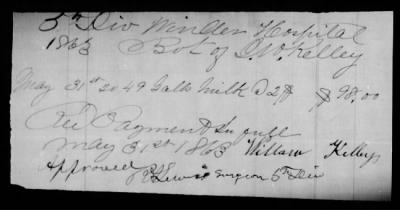 5th Div Winder Hospital
1863 Bot of J. W. Kelley
May 31st To 49 Galls Milk @ 2$ $98.00
Recd Payment In full
May 31st 1863 William Kelley
Approved
Lewis Surgeon 5th Div